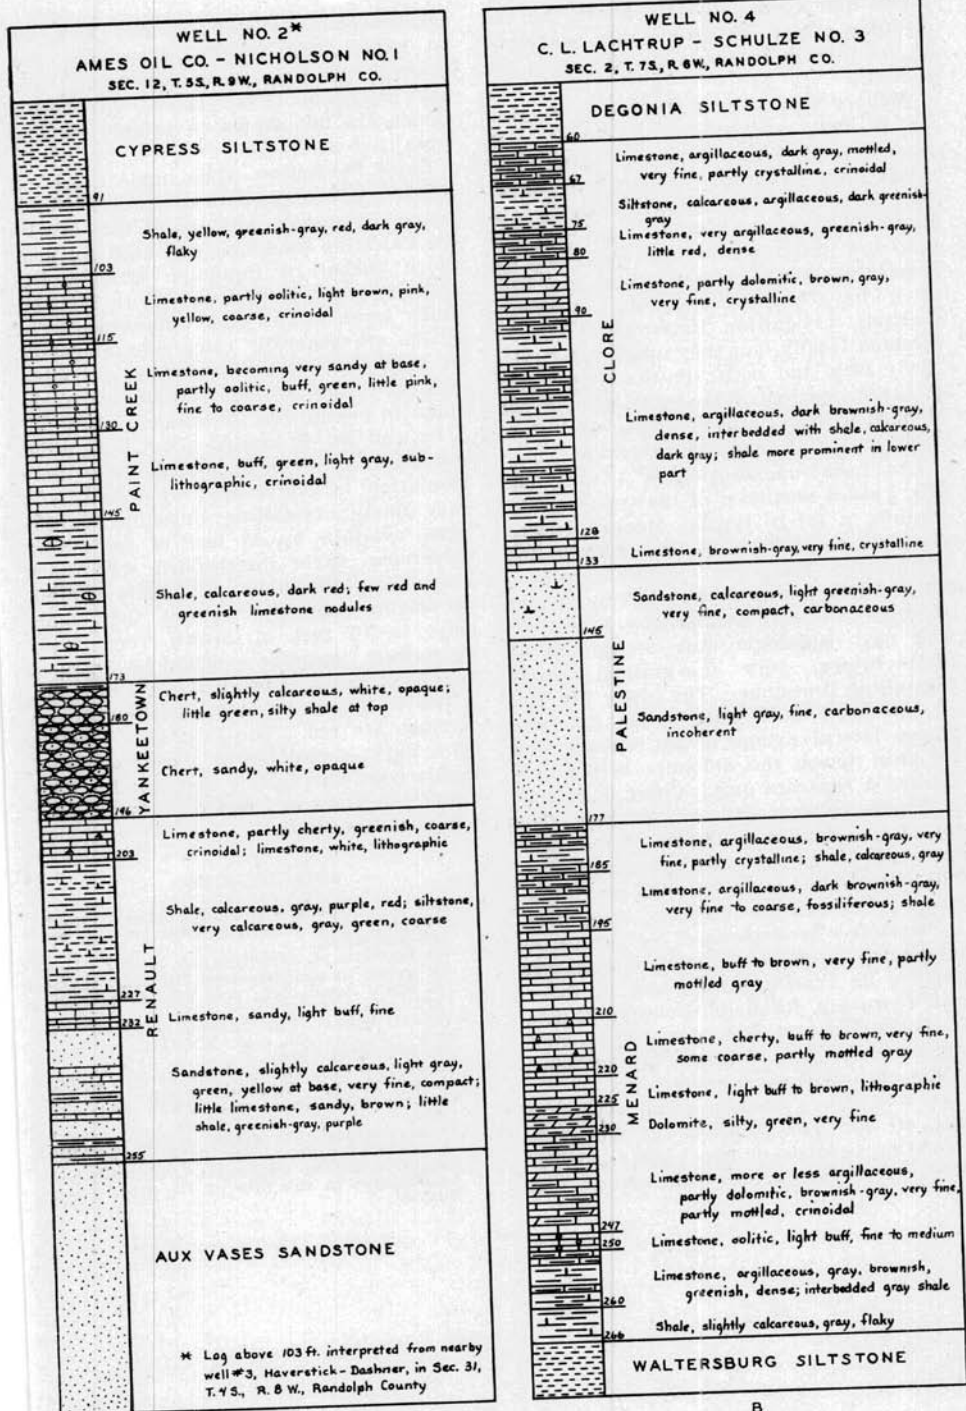 WELL NO. 2*
AMES OIL CO. - NICHOLSON NO. 1
SEC. 12, T. 5S., R. 9W., RANDOLPH CO.
CYPRESS SILTSTONE
91
Shale, yellow, greenish-gray, red, dark gray,
flaky
103
Limestone, partly oolitic, light brown, pink,
yellow, coarse, crinoidal
115
Limestone, becoming very sandy at base,
partly oolitic, buff, green, little pink,
fine to coarse, crinoidal
130
PAINT CREEK
Limestone, buff, green, light gray, sub-
lithographic, crinoidal
145
Shale, calcareous, dark red; few red and
greenish limestone nodules
173
Chert, slightly calcareous, white, opaque;
little green, silty shale at top
180
YANKEETOWN
Chert, sandy, white, opaque
196
Limestone, partly cherty, greenish, coarse,
crinoidal; limestone, white, lithographic
203
Shale, calcareous, gray, purple, red; siltstone,
very calcareous, gray, green, coarse
RENAULT
227
Limestone, sandy, light buff, fine
232
Sandstone, slightly calcareous, light gray,
green, yellow at base, very fine, compact;
little limestone, sandy, brown; little
shale, greenish-gray, purple
255
AUX VASES SANDSTONE
* Log above 103 ft. interpreted from nearby
well #3, Haverstick-Dashner, in Sec. 31,
T. 4 S., R. 8 W., Randolph County
WELL NO. 4
C. L. LACHTRUP - SCHULZE NO. 3
SEC. 2, T. 7S., R. 6W., RANDOLPH CO.
DEGONIA SILTSTONE
60
Limestone, argillaceous, dark gray, mottled,
very fine, partly crystalline, crinoidal
67
Siltstone, calcareous, argillaceous, dark greenish-
gray
75
Limestone, very argillaceous, greenish-gray,
little red, dense
80
Limestone, partly dolomitic, brown, gray,
very fine, crystalline
90
CLORE
Limestone, argillaceous, dark brownish-gray,
dense, interbedded with shale, calcareous,
dark gray; shale more prominent in lower
part
128
Limestone, brownish-gray, very fine, crystalline
133
Sandstone, calcareous, light greenish-gray,
very fine, compact, carbonaceous
145
PALESTINE
Sandstone, light gray, fine, carbonaceous,
incoherent
177
Limestone, argillaceous, brownish-gray, very
fine, partly crystalline; shale, calcareous, gray
185
Limestone, argillaceous, dark brownish-gray,
very fine to coarse, fossiliferous; shale
195
Limestone, buff to brown, very fine, partly
mottled gray
210
Limestone, cherty, buff to brown, very fine,
some coarse, partly mottled gray
220
MENARD
Limestone, light buff to brown, lithographic
225
Dolomite, silty, green, very fine
230
Limestone, more or less argillaceous,
partly dolomitic, brownish-gray, very fine,
partly mottled, crinoidal
247
Limestone, oolitic, light buff, fine to medium
250
Limestone, argillaceous, gray, brownish,
greenish, dense; interbedded gray shale
260
Shale, slightly calcareous, gray, flaky
266
WALTERSBURG SILTSTONE
B